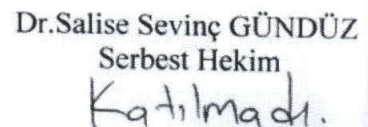 Dr.Salise Sevinç GÜNDÜZ
Serbest Hekim
Katılmadı.